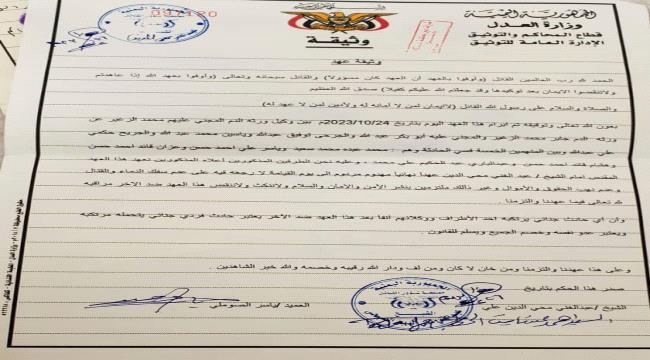 الجمهورية اليمنية
وزارة العدل
قطاع المحاكم والتوثيق
الإدارة العامة للتوثيق
وثيقة
وثيقة عهد
الحمد لله رب العالمين القائل (وأوفوا بالعهد أن العهد كان مسؤولا) والقائل سبحانه وتعالى (وأوفوا بعهد الله إذا عاهدتم
ولاتنقضوا الايمان بعد توكيدها وقد جعلتم الله عليكم كفيلا) صدق الله العظيم
والصلاة والسلام على رسول الله القائل (لاايمان لمن لا أمانه له ولاأمين لمن لا عهد له)
بعون الله تعالى وتوفيقه تم ابرام هذا العهد اليوم بتاريخ 2023/10/24م بين وكيل ورثه الدم المجني عليهم محمد الرغير عن
ورثه الدم جابر محمد الرغير والمجني عليه أبو بكر عبد الله والجرحى توفيق عبدالله وياسين محمد عبد الله والجريح حكمي
علي عبدالله وبين المتهمين الخمسة في الحادثة وهم : محمد عبده محمد سعيد وياسر علي احمد حسن وعزان قائد احمد حسن
وهشام قائد احمد حسن وعبدالباري عبد الحكيم علي محمد ، وعليه نحن الطرفين المذكورين أعلاه المذكورين نعهد هذا العهد
المقدس أمام الشيخ / عبد الغني محي الدين عهدا نهائيا مهدوم مردوم الى يوم القيامة لا رجعه فيه على عدم سفك الدماء والقتال
وعدم نهب الحقوق والأموال وغير ذالك ملتزمين بنشر الأمن والأمان والسلام ولاننكث ولاننقض هذا العهد ضد الاخر مراقبه
لله تعالى فيما عهدنا والتزمنا .
وأن أي حادث جنائي يرتكبه احد الأطراف ووكلائهم أنفا بعد هذا العهد ضد الاخر يعتبر حادث فردي جنائي يتحمله مرتكبه
ويعتبر عدو نفسه وخصم الجميع ويسلم للقانون .
وعلى هذا عهدنا والتزمنا ومن خان لا كان ومن لف ودار الله رقيبه وخصمه والله خير الشاهدين .
صدر هذا الحكم بتاريخ
الشيخ /عبدالغني محي الدين علي
العميد /ياسر الصوملي